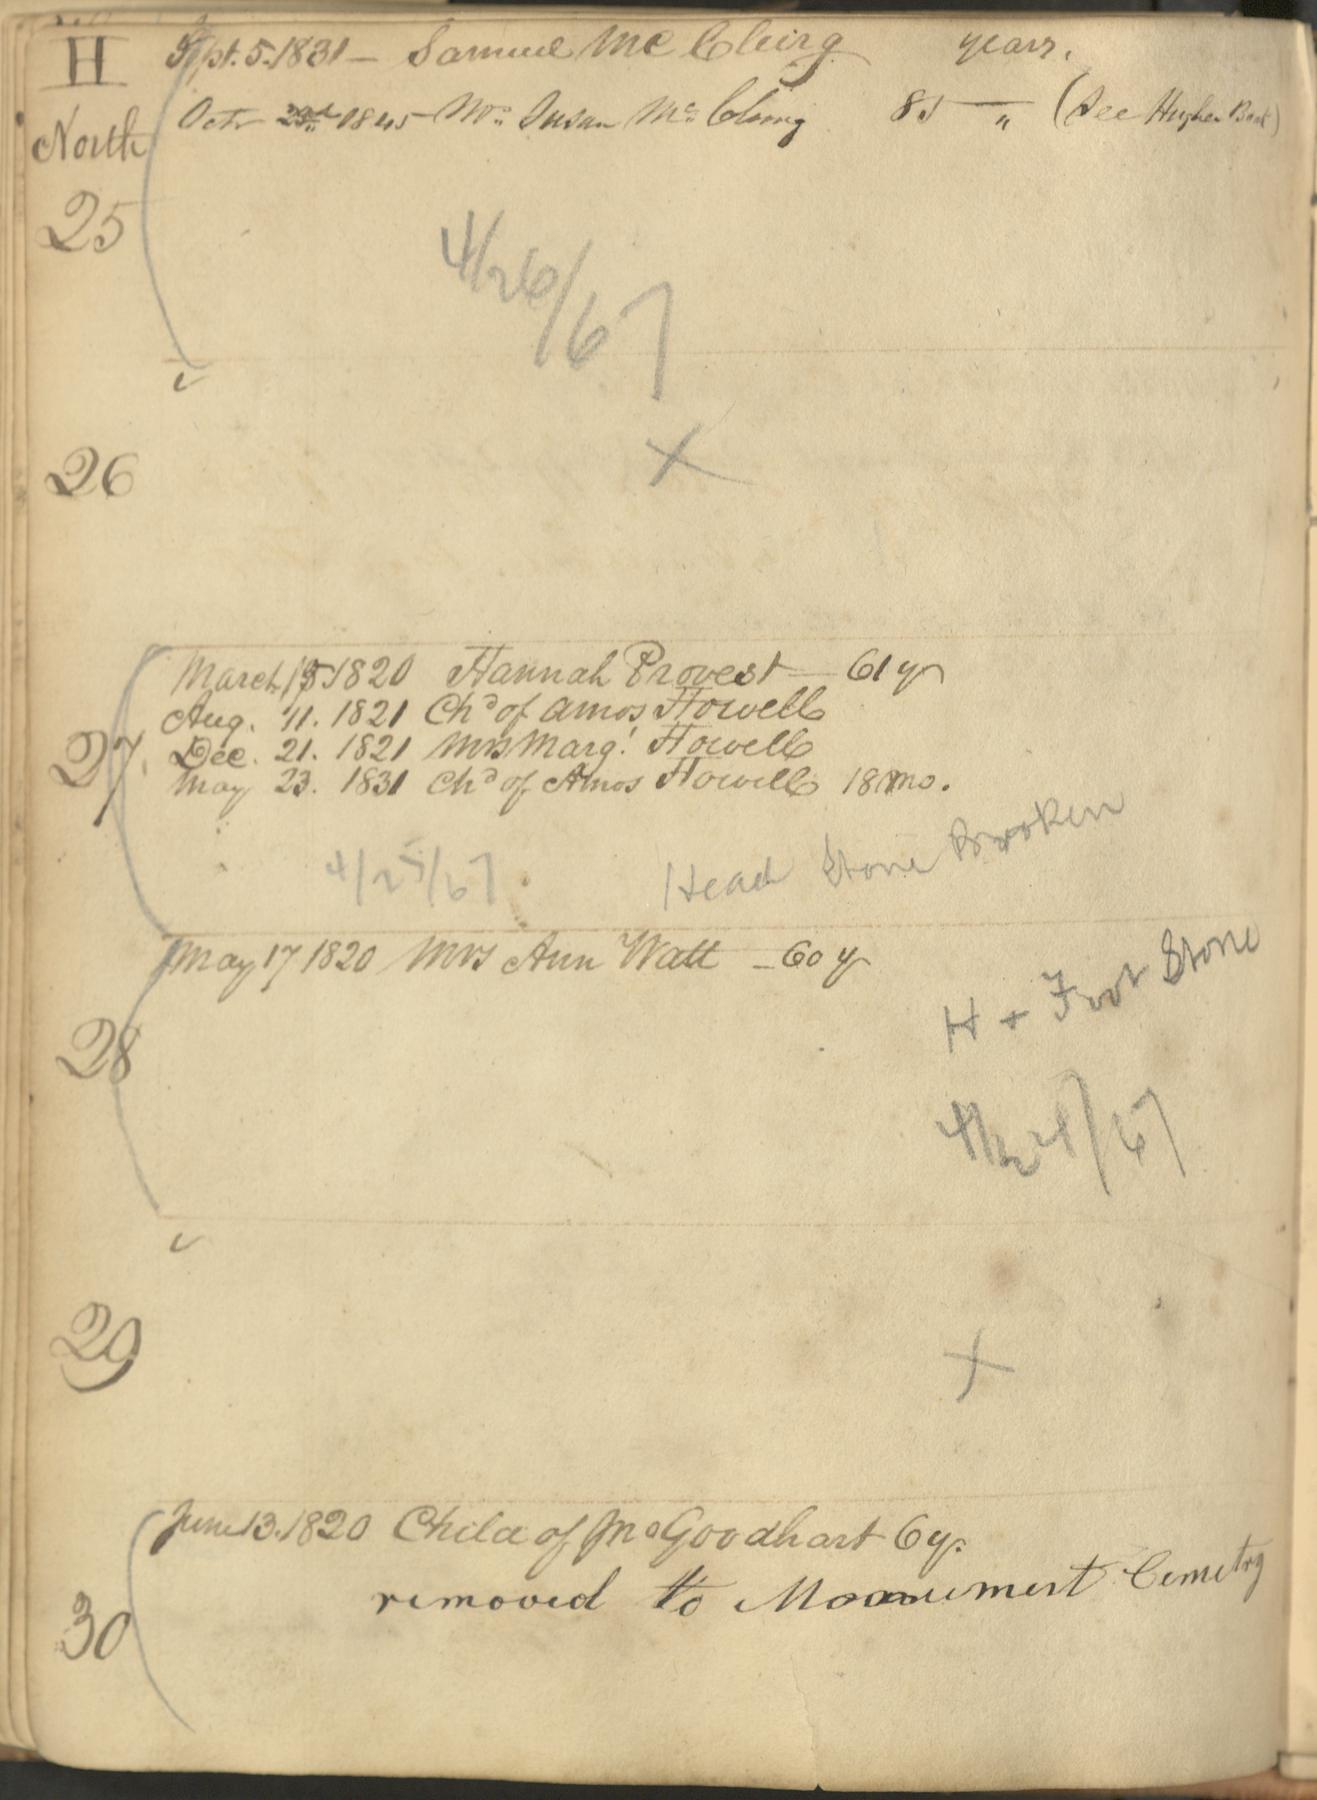 H Sept. 5. 1831 — Samuel Mc Clurg years.
North Octr 1845 — Mrs. Susan Mc Clurg 85 — " (See Hughes Book)
25
4/26/67
26
X
March 1820 Hannah Provest — 61 y
Aug. 11. 1821 Chd of Amos Howell
27. Dec. 21. 1821 Mrs Margt Howell
May 23. 1831 Chd of Amos Howell 18 mo.
4/25/67 Head Stone Broken
May 17 1820 Mrs Ann Watt — 60 y
H + Foot Stone
28
4/24/67
29
X
June 13. 1820 Child of Jno Goodhart 6 y.
removed to Monument Cemetry
30